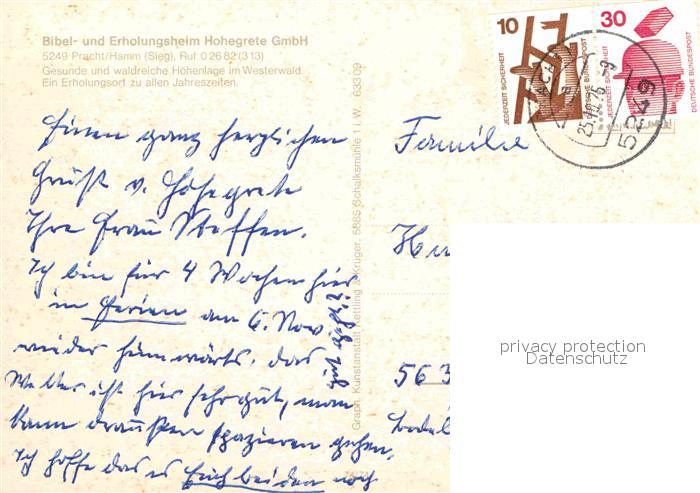 Bibel- und Erholungsheim Hohegrete GmbH
5249 Pracht/Hamm (Sieg), Ruf 0 26 82 (3 13)
Gesunde und waldreiche Höhenlage im Westerwald.
Ein Erholungsort zu allen Jahreszeiten.
Einen ganz herzlichen
Gruß v. Hohegrete
Ihre Frau Steffen.
Ich bin für 4 Wochen hier
in Ferien am 6. Nov
wieder heimwärts. das
Wetter ist hier sehr gut, man
kann draußen spazieren gehen,
Ich hoffe das es Euch beiden noch
Graph. Kunstanstalt Kettling & Krüger, 5885 Schalksmühle 1 i. W. 633 09
10
JEDERZEIT SICHERHEIT
DEUTSCHE BUNDESPOST
30
JEDERZEIT SICHERHEIT
DEUTSCHE BUNDESPOST
5249
Familie
563
privacy protection
Datenschutz